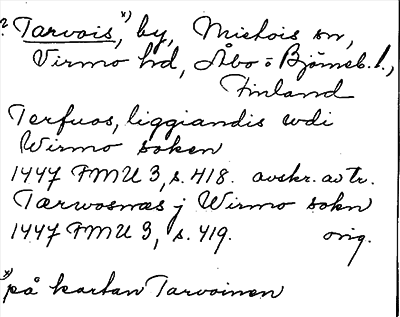 ? Tarvois, *) by, Mietois sn,
Virmo hd, Åbo o Björneb. l.,
Finland
Terfuos, liggiandis vdi
Wirmo soken
1447 FMU 3, s. 418. avskr. av tr.
Tærwosnæs j Wirmo sokn
1447 FMU 3, s. 419. orig.
*) på kartan Tarvoinen